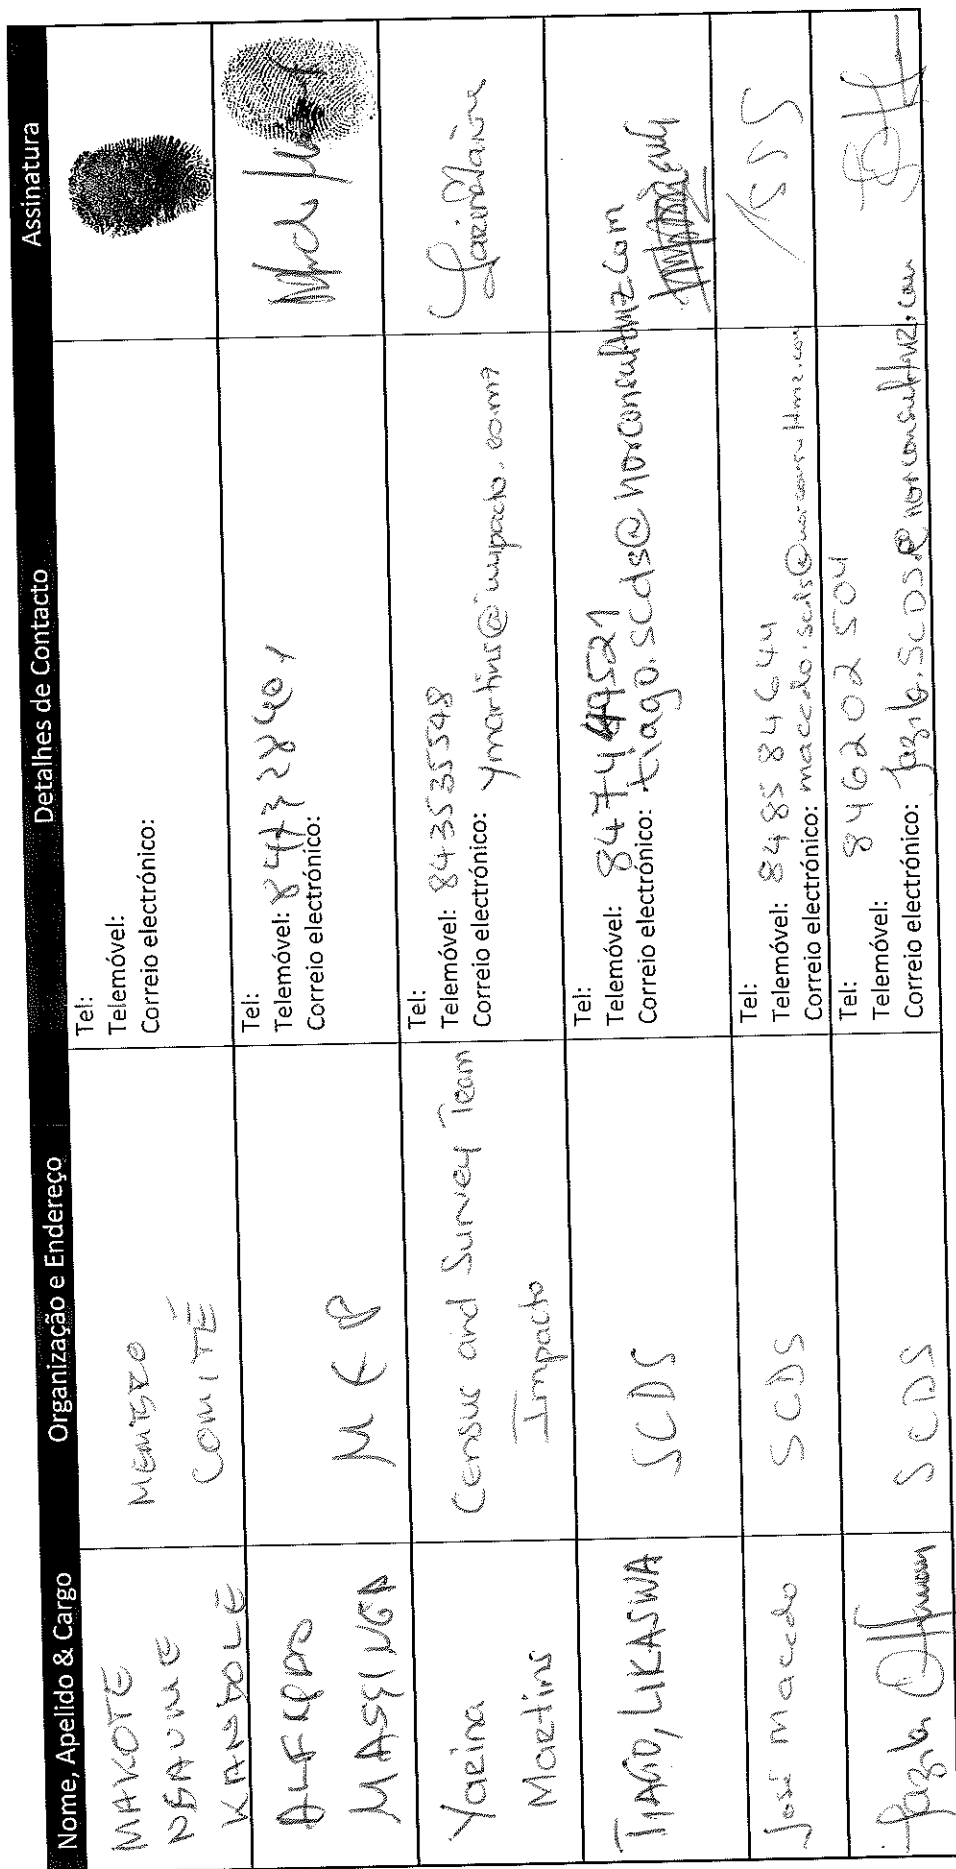 Nome, Apelido & Cargo Organização e Endereço Detalhes de Contacto Assinatura
MAKOTE
KANDOLE
MEMBRO
COMITÉ
Tel:
Telemóvel:
Correio electrónico:
ALFREDO
MASSINGA
Tel:
Telemóvel:
Correio electrónico:
Yarina
Martins
Census and Survey Team
Impacto
Tel:
Telemóvel: 843535548
Correio electrónico: ymartins@impacto.co.mz
TIAGO, LIKASWA
SCDS
Tel:
Telemóvel:
Correio electrónico: tiago.scds@norconsultmz.com
José Macedo
SCDS
Tel:
Telemóvel: 848584644
Correio electrónico: macedo.scds@norconsultmz.com
SCDS
Tel: 846202504
Telemóvel:
Correio electrónico: